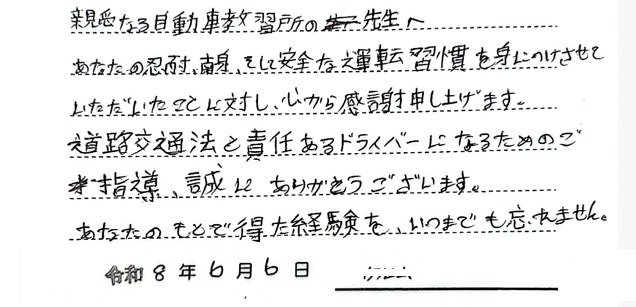 親愛なる自動車教習所の先生へ
あなたの忍耐、献身、そして安全な運転習慣を身につけさせて
いただいたことに対し、心から感謝申し上げます。
道路交通法と責任あるドライバーになるためのご
指導、誠にありがとうございます。
あなたのもとで得た経験を、いつまでも忘れません。
令和8年6月6日